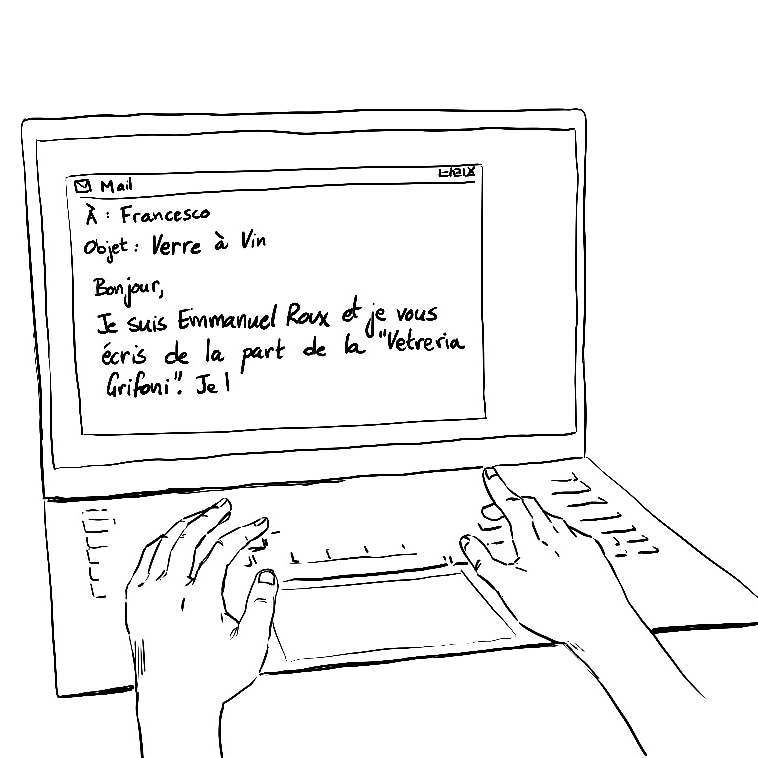 Mail
À : Francesco
Objet : Verre à Vin
Bonjour,
Je suis Emmanuel Roux et je vous
écris de la part de la "Vetreria
Grifoni". Je